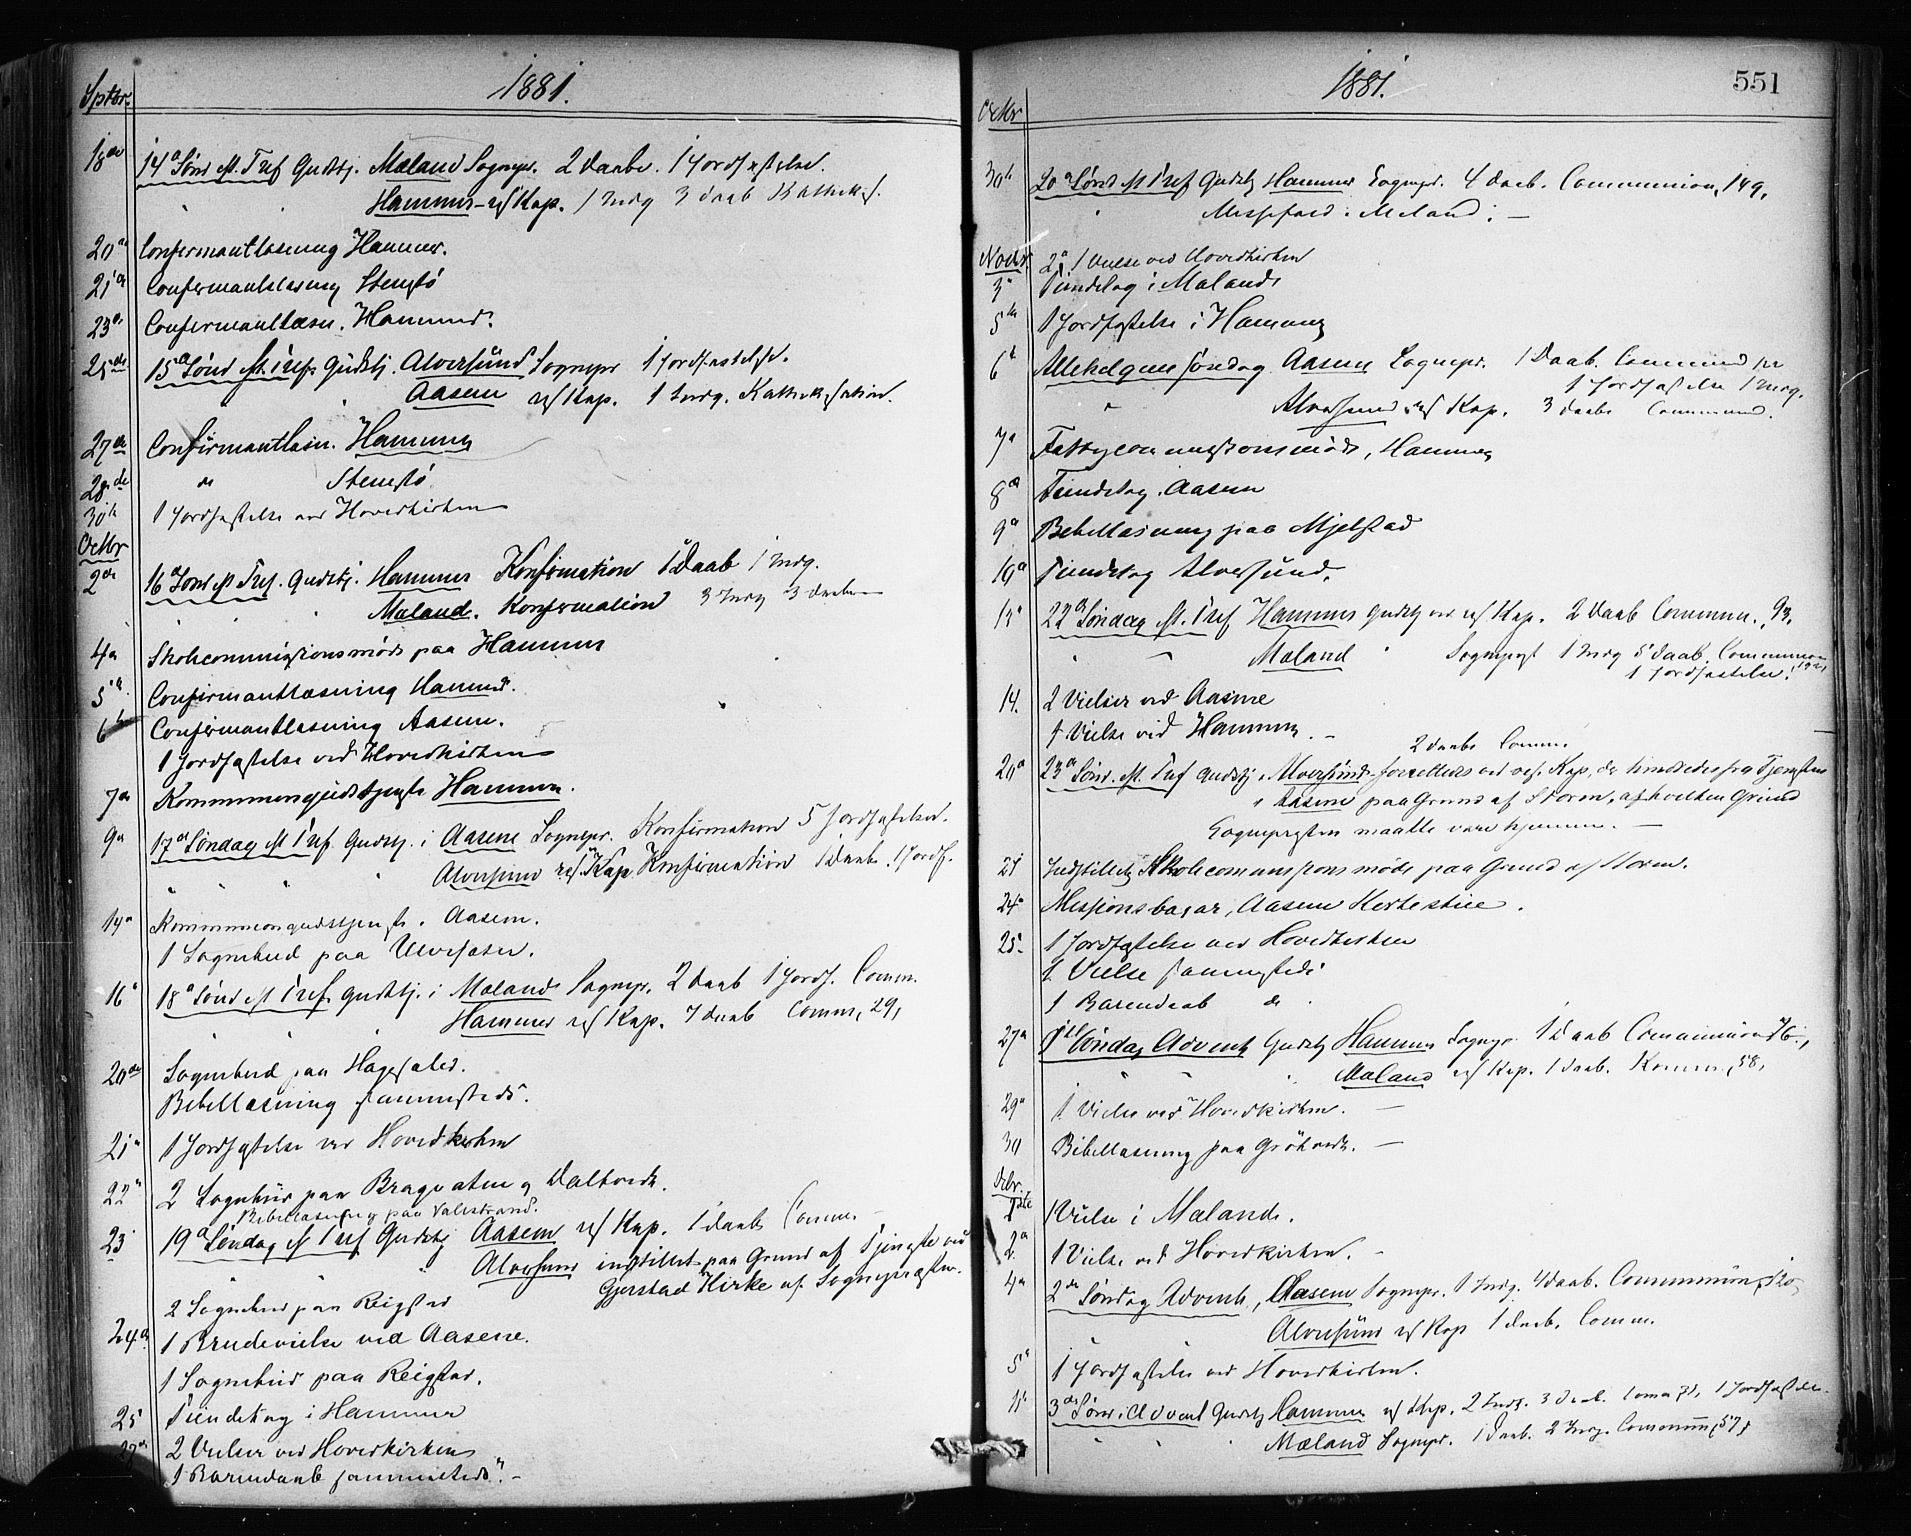 Sptbr. 1881.
18de 14d Sönd. e/ Tref Gudstj. Mæland Sognepr. 2 Daabe. 1 Jordfæstelse.
" " Hammer - res Kap. 1 Indg 3 daab Kathekes.
20de Confirmantlæsning Hammer.
21de Confirmantlæsning Stenstö
23de Confirmantlæsn. Hammer.
25de 15d Sönd e/ Tref. Gudstj. Alversund Sognepr 1 Jordfæstelse.
" Aasene res Kap. 1 Indg. Kathekisation.
27de Confirmantlæsn. Hammer
28de do Stenstö
30te 1 Jordfæstelse ved Hovedkirken
Octbr
2den 16d Sönd e/ Tref. Gudstj. Hammer Konfirmation 1 Daab 1 Indg.
" " Mæland. Konfirmation 3 Indg 3 daabe
4d Skolecommissionsmöde paa Hammer
5te Confirmantlæsning Hammer.
6te Confirmantlæsning Aasene.
1 Jordfæstelse ved Hovedkirken
7de Kommuniongudstjeneste Hammer.
9d 17d Söndag e/ Tref. Gudstj. i Aasene Sognepr. Konfirmation 5 Jordfæstelser.
" " " " Alversund res. Kap Konfirmation 1 Daab. 1 Jordf.
14d Kommuniongudstjeneste. Aasene.
1 Sognebud paa
16d 18d Sönd e/ Tref. Gudstj. i Mæland Sognepr. 2 Daab 1 Jordf. Comm.
" " " Hammer res Kap. 7 daab Comm, 29,
20de Sognebud paa
Bibellæsning sammesteds.
21d 1 Jordfæstelse ved Hovedkirken
22d 2 Sognebud paa og
Bibellæsning paa Valestrand.
23 19d Söndag e/ Tref Gudstj Aasene res Kap. 1 daab Comm.
" " " Alversund indstillet paa Grund af Tjeneste ved
Gjerstad Kirke af Sognepræsten.
2 Sognebud paa Reigstad
24d 1 Brudevielse ved Aasene.
1 Sognebud paa Reigstad.
25 Tiendetag i Hammer
27d 2 Vielser ved Hovedkirken
1 Barnedaab sammesteds. -
1881. 551
Octbr
30te 20d Sönd e/ Tref Gudstj Hammer Sognepr. 4 daab. Communion, 149,
" Messefald i Mæland. -
Novbr. 2d 1 Vielse ved Hovedkirken
3d Tiendetag i Mæland.
5te 1 Jordfæstelse i Hammer
6te Allehelgens Söndag. Aasene Sognepr. 1 Daab. Commun
1 Jordfæstelse 1 Indg.
" Alversund res Kap. 3 daabe Commun.
7d Fattigcommissionsmöde, Hammer
8d Tiendetag. Aasene
9d Bibellæsning paa Mjelstad
10d Tiendetag Alversund.
13d 22d Söndag e/ Tref Hammer Gudstj ved res Kap. 2 Daab Commun. 93,
" " Mæland " Sognepræst 1 Indg 5 daab Communion
1 Jordfæstelse.
14. 2 Vielser ved Aasene
1 Vielse ved Hammer. -
2 daabe Comm.
20d 23d Sönd. e/ Tref Gudstj i Alversund forrettedes ved res. Kap, der hindredes fra Tjenesten
i Aasene paa Grund af Storm, af hvilken Grund
Sognepræsten maatte være hjemme. -
21 Indstillet Skolecommissionsmöde paa Grund af Storm.
24d Missionsbazar, Aasene
25. 1 Jordfæstelse ved Hovedkirken
1 Vielse sammesteds
1 Barnedaab do.
27d 1ste Söndag Advent Gudstj Hammer Sognepr 1 Daab Communion
" " " Mæland res Kap. 1 daab. Komm. 58,
29d 1 Vielse ved Hovedkirken. -
30 Bibellæsning paa -
Dcbr.
1ste 1 Vielse i Mæland.
2d 1 Vielse ved Hovedkirken. -
4d 2den Söndag Advent, Aasene Sognepr. 1 Indg. 4 daab. Communion
" " Alversund res Kap 1 daab. Comm.
5d 1 Jordfæstelse ved Hovedkirken.
11d 3de Sönd. i Advent Gudstj Hammer res Kap. 2 Indg. 3 daab. Comm 1 Jordfæstelse.
" " " Mæland Sognepr. 1 daab. 2 Indg. Communion, 57,